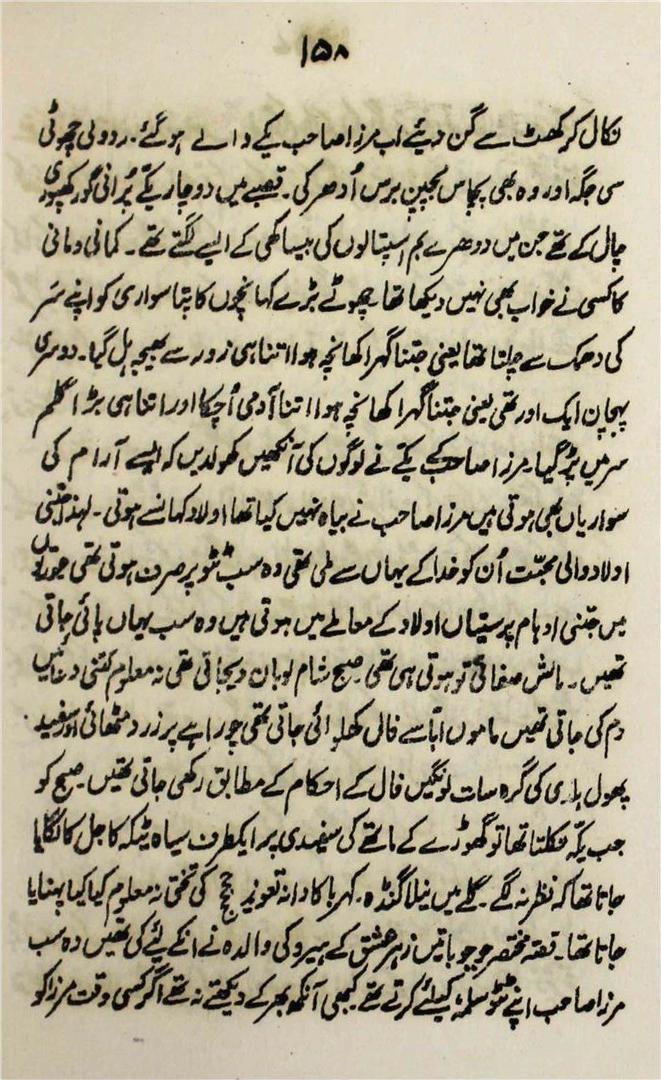 ۱۵۸
نکال کر کھٹ سے گن دیئے اب مرزا صاحب یکے والے ہو گئے۔ ردولی چھوٹی
سی جگہ اور وہ بھی پچاس پچپن برس اُدھر کی۔ قصبے میں دو چار یکّے پُرانی گورکھپوری
چال کے تھے جن میں دوھرے بم اسپتالوں کی بیساکھی کے ایسے لگتے تھے۔ کمانی ومانی
کا کسی نے خواب بھی نہیں دیکھا تھا چھوٹے بڑے کھانچوں کا پتا سواری کو اپنے سَر
کی دھمک سے چلتا تھا یعنی جتنا گہرا کھانچہ ہوا اتنا ہی زور سے بھیجہ ہل گیا۔ دوسری
پہچان ایک اور تھی یعنی جتنا گہرا کھانچہ ہوا اتنا آدمی اُچکا اور اتنا ہی بڑا گلم
سر میں پڑ گیا۔ مرزا صاحب کے یکّے نے لوگوں کی آنکھیں کھولدیں کہ ایسے آرام کی
سواریاں بھی ہوتی ہیں مرزا صاحب نے بیاہ نہیں کیا تھا اولاد کہاں سے ہوتی۔ لہذا جتنی
اولاد والی محبّت اُن کو خدا کے یہاں سے ملی تھی وہ سب ٹٹو پر صرف ہوتی تھی عورتوں
میں جتنی اوہام پرستیاں اولاد کے معاملے میں ہوتی ہیں وہ سب یہاں پائی جاتی
تھیں۔ مالش صفائی تو ہوتی ہی تھی صبح شام لوبان دیجاتی تھی نہ معلوم کتنی دعائیں
دم کی جاتی تھیں ماموں ابّا سے فال کھلوائی جاتی تھی چوراہے پر زرد مٹھائی اور سفید
پھول ہلدی کی گرہ سات لونگیں فال کے احکام کے مطابق رکھی جاتی تھیں۔ صبح کو
جب یکّہ نکلتا تھا تو گھوڑے کے ماتھے کی سفیدی پر ایکطرف سیاہ ٹیکہ کاجل کا لگایا
جاتا تھا کہ نظر نہ لگے۔ گلے میں نیلا گنڈہ۔ کہربا کا دانہ تعویذ کی تختی نہ معلوم کیا کیا پہنایا
جاتا تھا۔ قصّہ مختصر جو جو باتیں زہر عشق کے ہیرو کی والدہ نے انکے لئے کی تھیں وہ سب
مرزا صاحب اپنے ٹٹو سلمہ، کیلئے کرتے تھے کبھی آنکھ بھر کے دیکھتے نہ تھے اگر کسی وقت مرزا کو